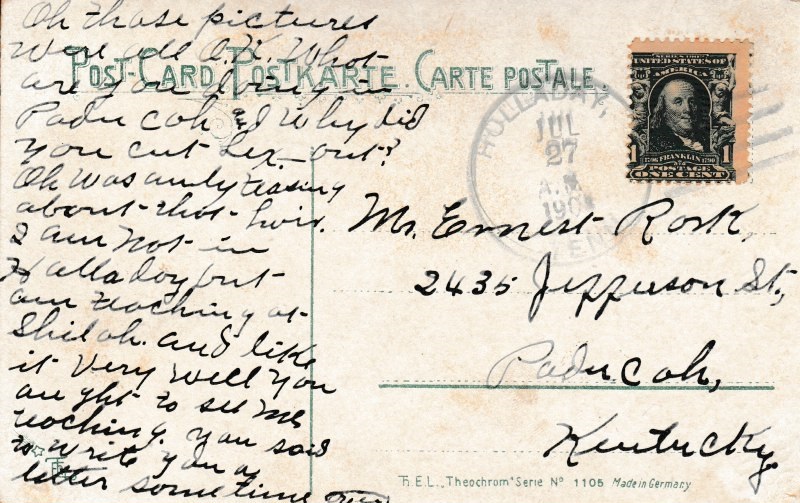 Oh those pictures
were all O.K. What
are you doing in
Paducah and Why did
you cut Lex- out?
Oh was only teasing
about that hair.
I am not in
Halladay but
am teaching at
Shiloh. and like
it very well You
aught to see me
teaching. you said
to write you a
letter sometime
POST-CARD POSTKARTE CARTE POSTALE.
HOLLADAY,
JUL
27
A.M.
190
TENN
SERIES 1902
UNITED STATES OF
AMERICA
1 1
1706 FRANKLIN 1790
POSTAGE
ONE CENT
Mr. Ernest Rork,
2435 Jefferson St.,
Paducah,
Kentucky.
T.H.E.L. „Theochrom" Serie Nº 1105 Made in Germany